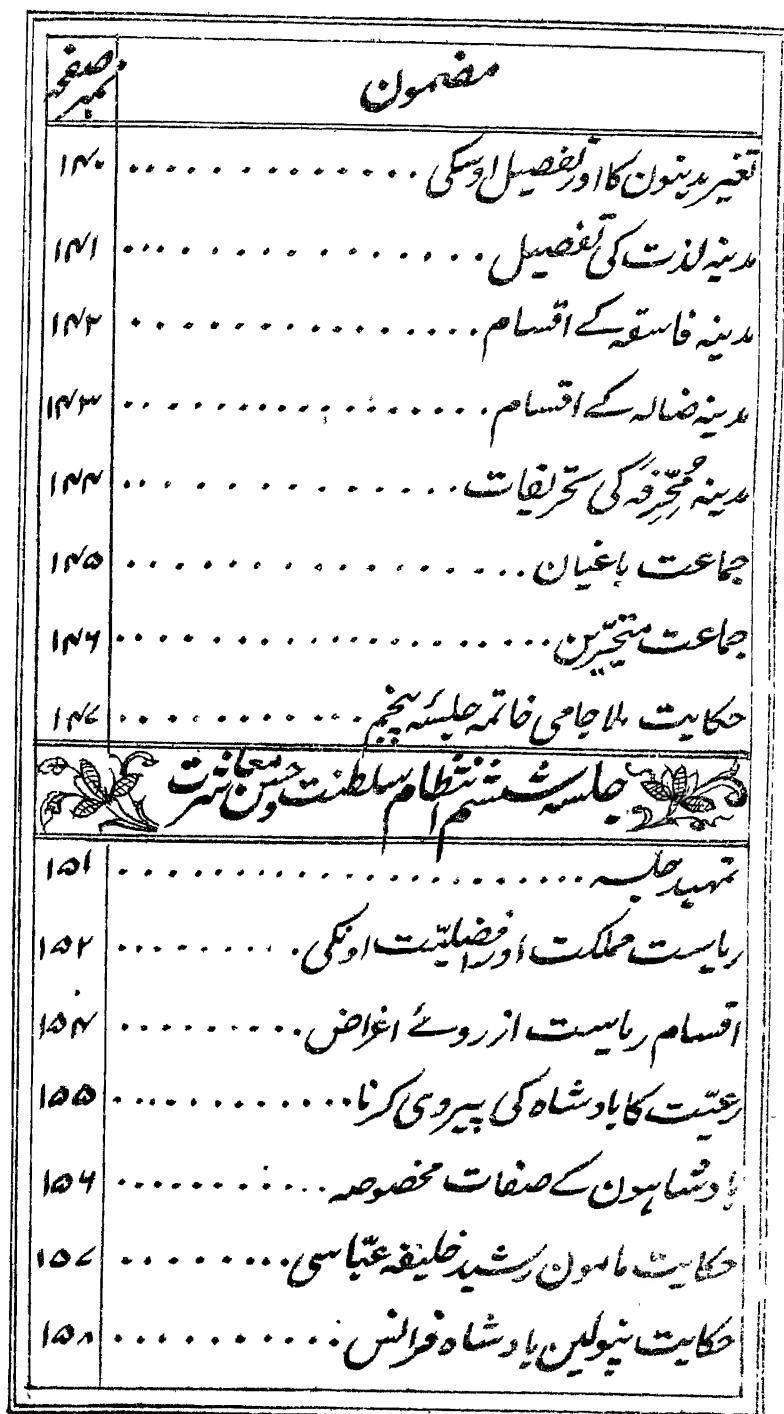 مضمون صفحہ نمبر
تغیر مدینون کا اور تفصیل اوسکی ۱۴۰
مدینہ لذت کی تفصیل ۱۴۱
مدینہ فاسقہ کے اقسام ۱۴۲
مدینہ ضالہ کے اقسام ۱۴۳
مدینہ کی تحریفات ۱۴۴
جماعت باغیان ۱۴۵
جماعت متحیّرین ۱۴۶
حکایت ملا جامی خاتمہ جلسۂ پنجم ۱۴۷
جلسہ ششم انتظام سلطنت و حسن معاشرت
تمہید جلسہ ۱۵۱
ریاست مملکت اور افضلیّت اونکی ۱۵۲
اقسام ریاست از روئے اغراض ۱۵۴
رعیّت کا بادشاہ کی پیروی کرنا ۱۵۵
بادشاہون کے صفات مخصوصہ ۱۵۶
حکایت مامون رشید خلیفہ عبّاسی ۱۵۷
حکایت نپولین بادشاہ فرانس ۱۵۸